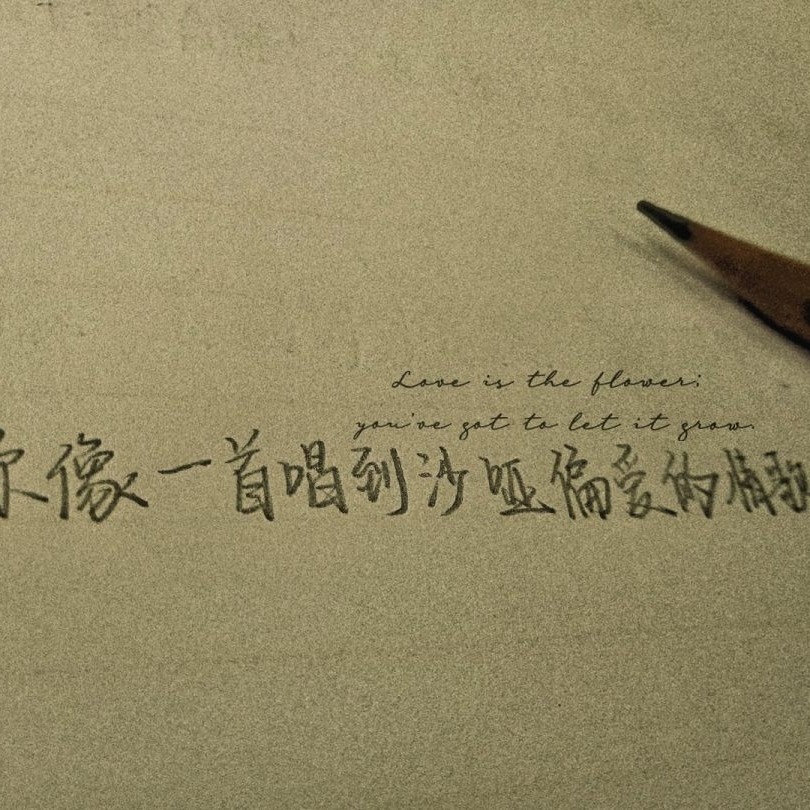 Love is the flower;
you've got to let it grow.
你像一首唱到沙哑偏爱的情歌